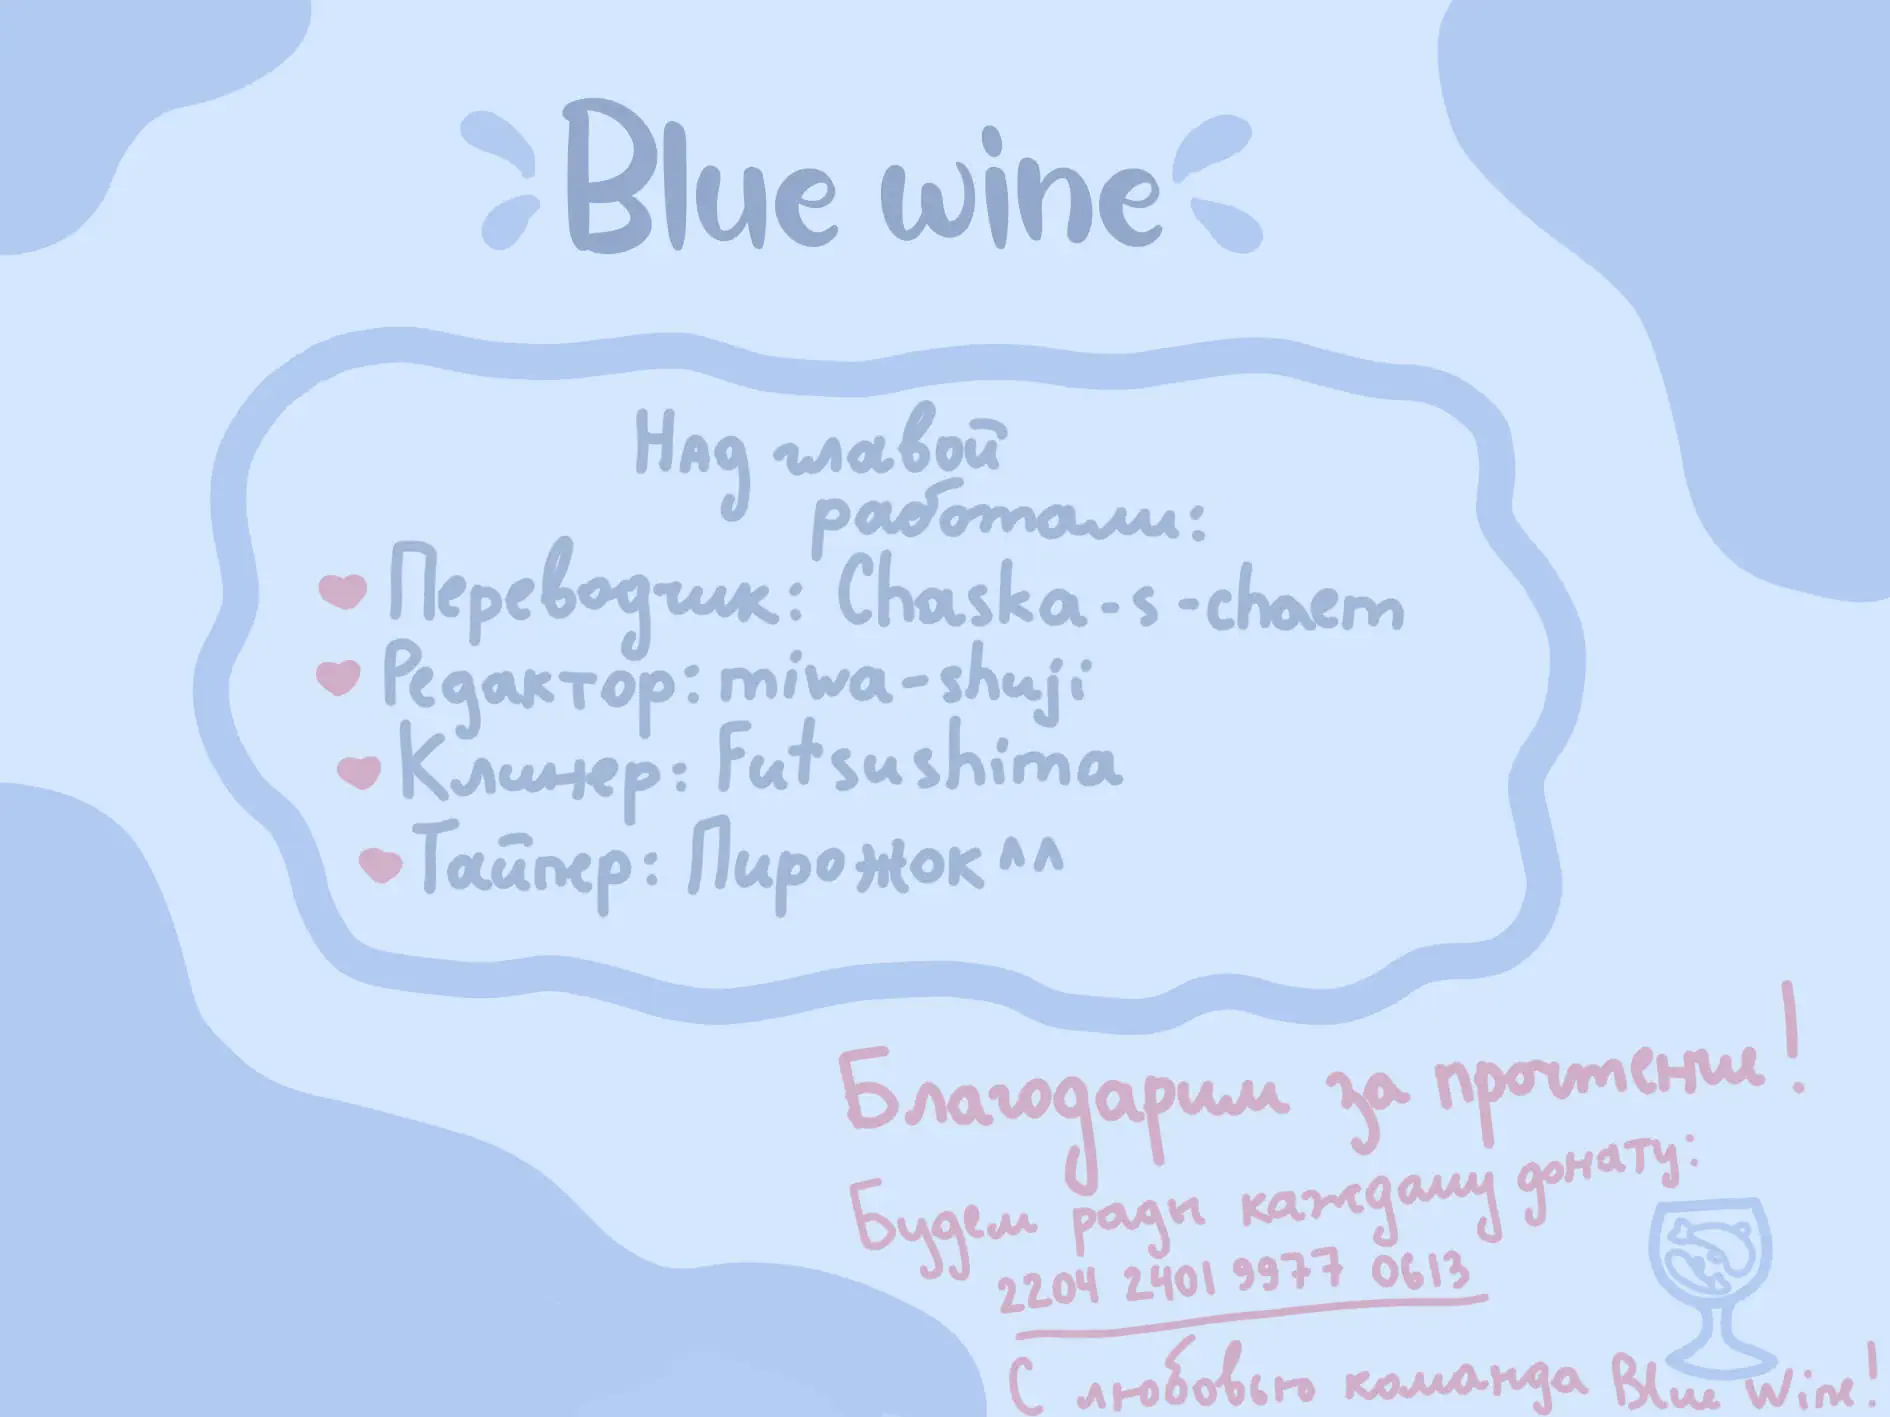 Blue wine
Над главой
работали:
Переводчик: Chaska-s-chaem
Редактор: miwa-shuji
Клинер: Futsushima
Тайпер: Пирожок ^^
Благодарим за прочтение!
Будем рады каждому донату:
2204 2401 9977 0613
С любовью команда Blue Wine!